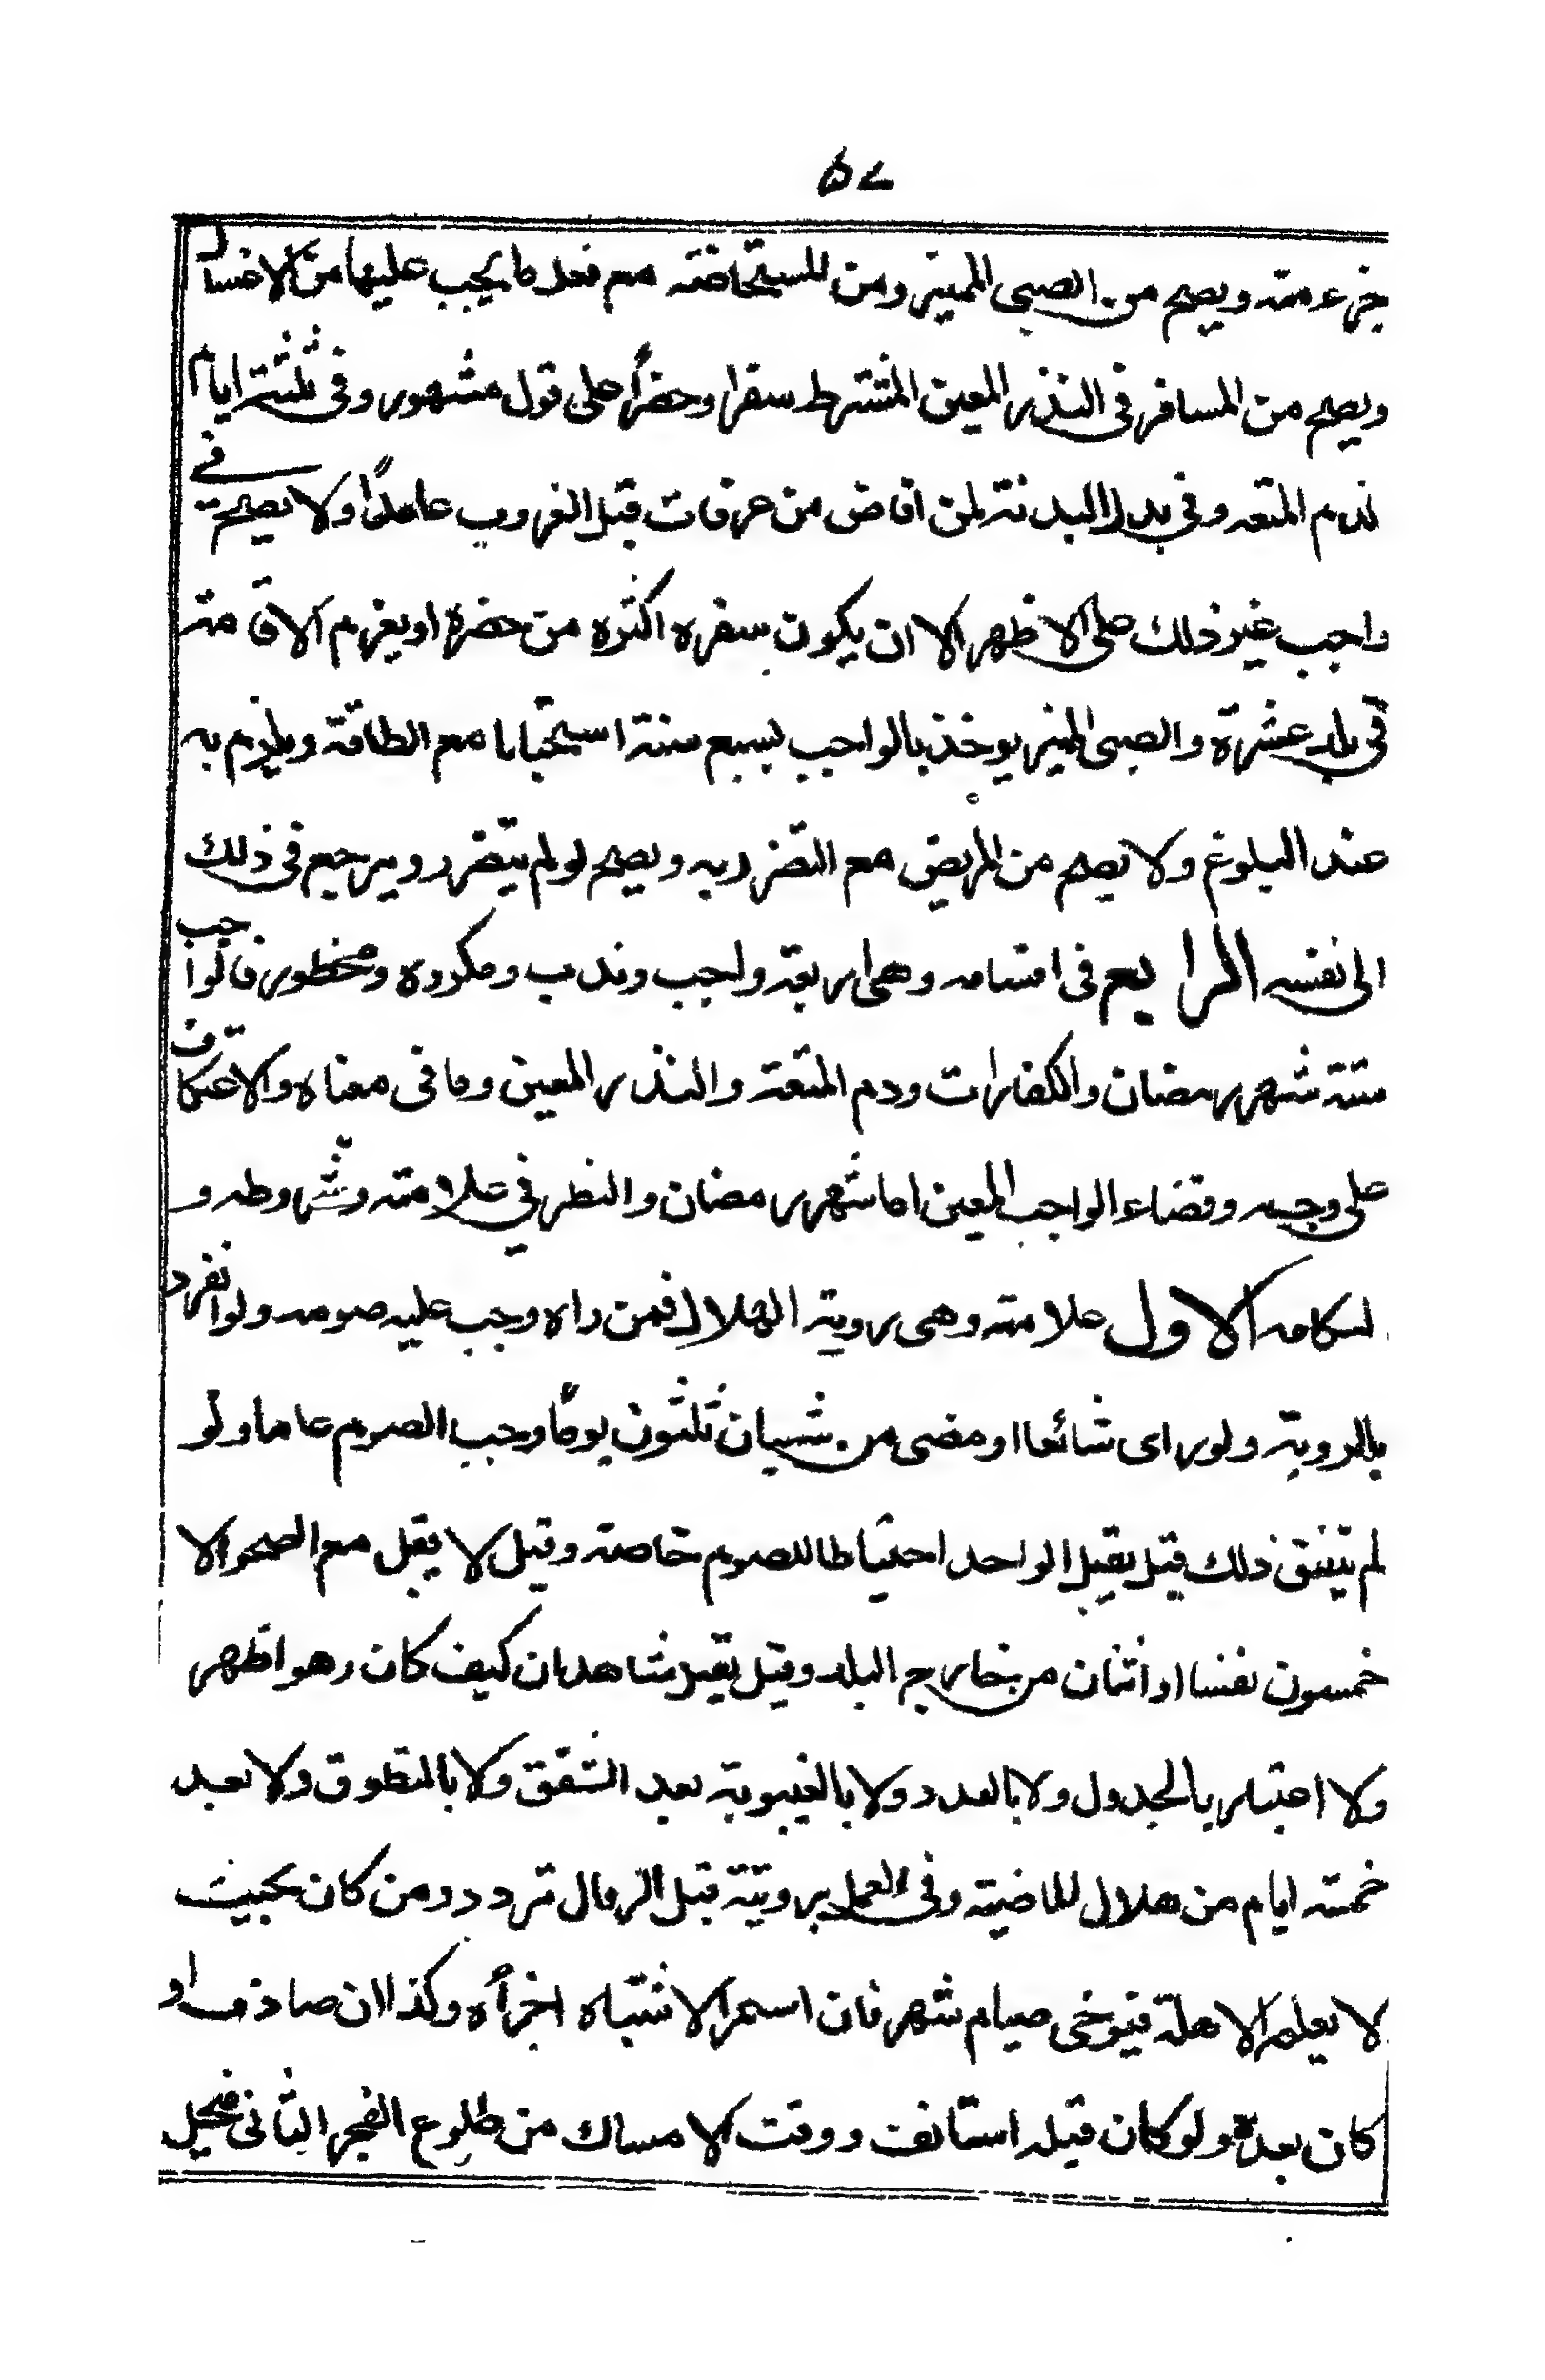 ۵۷
جزء منه ويصح من الصبى المميز ومن المستحاضة مع فعل ما يجب عليها من الاغسال
ويصح من المسافر فى النذر المعين المشترط سفرا وحضرا على قول مشهور وفى ثلثة ايام
لدم المتعه وفى بدل البدنة لمن افاض من عرفات قبل الغروب عامدا ولا يصح فى
واجب غير ذلك على الاظهر الا ان يكون سفره اكثره من حضره او يعزم الاقامة
فى بلد عشرة والصبى المميز يوخذ بالواجب لسبع سنة استحبابا مع الطاقة ويلزم به
عند البلوغ ولا يصح من المريض مع التضرر به ويصح لو لم يتضرر ويرجع فى ذلك
الى نفسه الرابع فى اقسامه وهى اربعة واجب وندب ومكروه ومحظور فالواجب
ستة شهر رمضان والكفارات ودم المتعة والنذر المعين وما فى معناه والاعتكاف
على وجه وقضاء الواجب المعين اما شهر رمضان والنظر فى علامته وشروطه و
احكامه الاول علامته وهى روية الهلال فمن راه وجب عليه صومه ولو انفرد
بالروية ولو راى شائعا او مضى من شعبان ثلثون يوما وجب الصوم عاما ولو
لم يتفق ذلك قيل يقبل الواحد احتياطا للصوم خاصة وقيل لا يقبل مع الصحو الا
خمسون نفسا او اثنان من خارج البلد وقيل يقبل شاهدان كيف كان وهو اظهر
ولا اعتبار بالجدول ولا بالعدد ولا بالغيبوبة بعد الشفق ولا بالتطوق ولا بعد
خمسة ايام من هلال الماضية وفى العمل برويته قبل الزوال تردد ومن كان بحيث
لا يعلم الاهلة فيتوخى صيام شهر فان استمر الاشتباه اجزأه وكذا ان صادف او
كان بعده ولو كان قبله استانف ووقت الامساك من طلوع الفجر الثانى فيحل